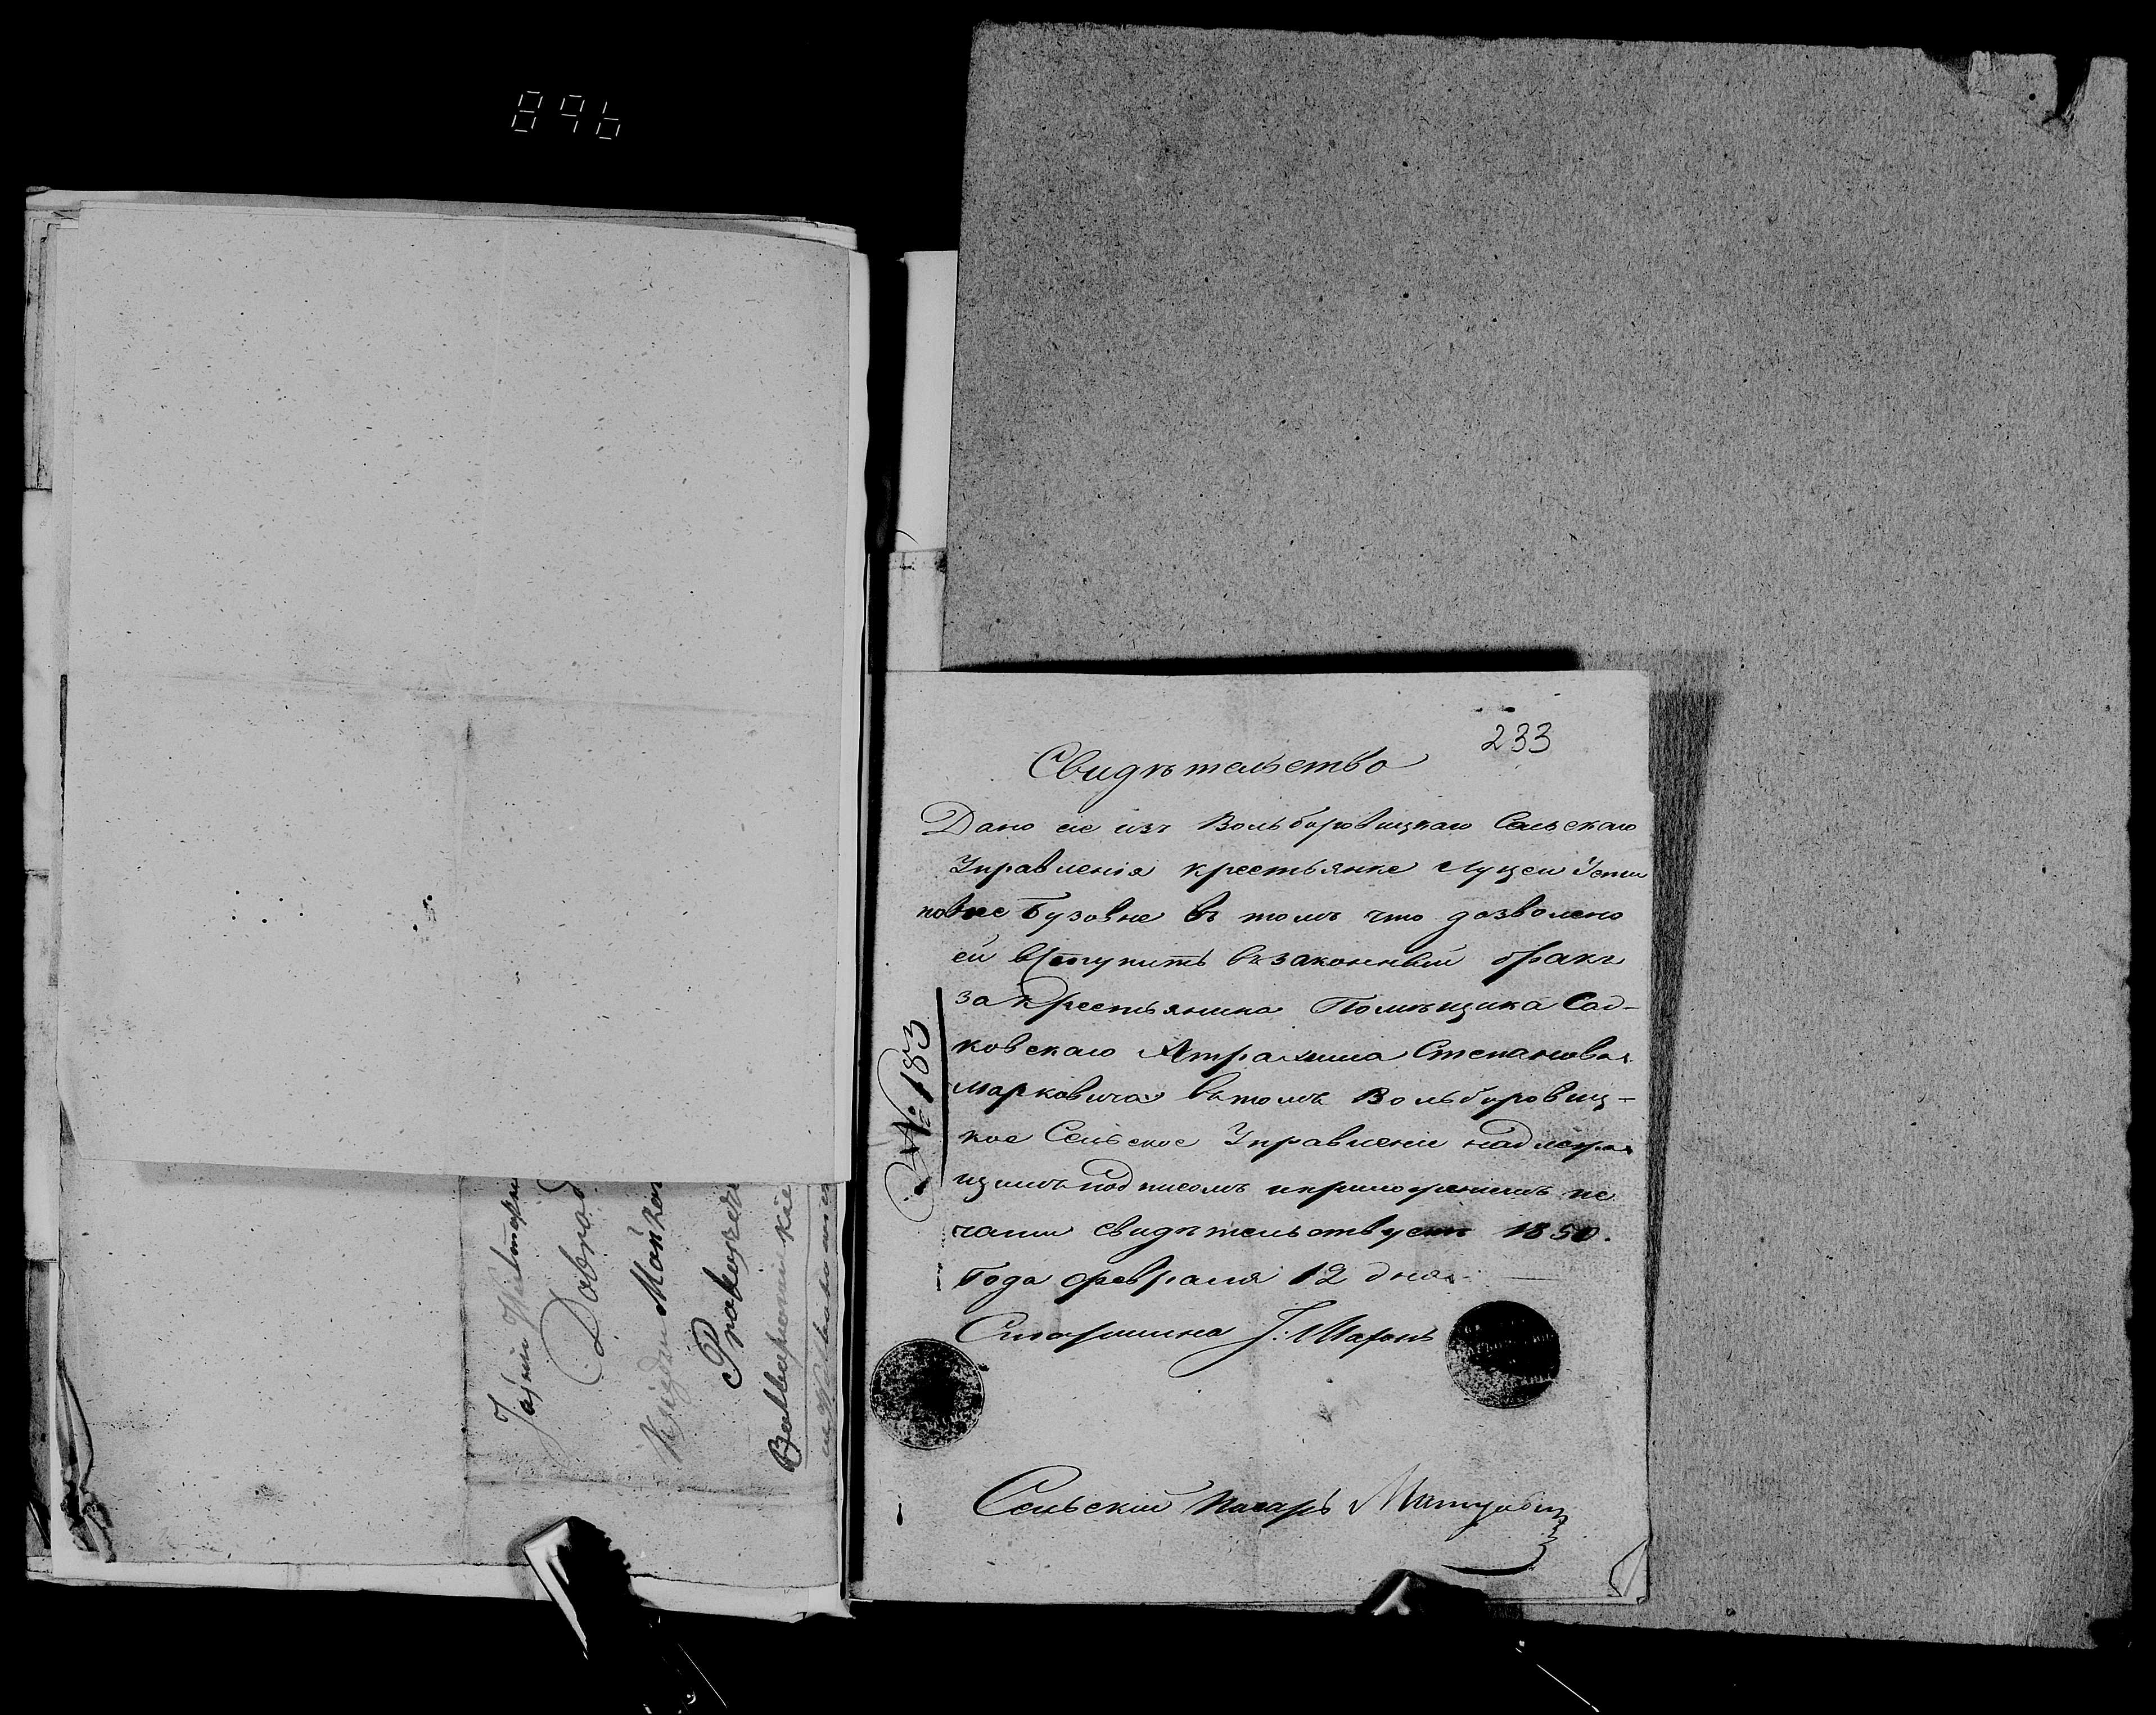 896
233
Свидѣтельство
Дано сіе изъ Вольборовицкаго Сельскаго
Управленія крестьянке Луцеи Усти
новне Бузовне въ томъ что дозволено
ей вступить въ законный бракъ
за крестьянина Помѣщика Сад-
ковскаго Степанова
Марковича въ томъ Вольборовиц-
кое Сельское Управленіе надлежа
щимъ подписомъ и приложеніемъ пе
чати свидѣтельствуетъ 1850.
Года февраля 12 дня
Старшина
Сельскій Писарь
№ 183
Dobrod
Proboszcz